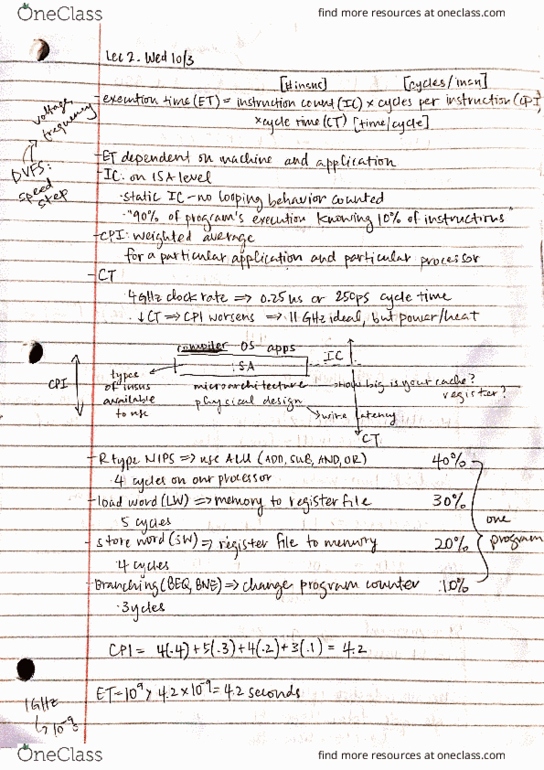 OneClass
find more resources at oneclass.com
Lec 2. Wed 10/3
[#insns] [cycles/insn]
-execution time (ET) = instruction count (IC) × cycles per instruction (CPI)
×cycle time (CT) [time/cycle]
voltage,
frequency
DVFS:
speed
step
-ET dependent on machine and application
-IC: on ISA level
·static IC - no looping behavior counted
·"90% of program's execution knowing 10% of instructions"
-CPI: weighted average
for a particular application and particular processor
-CT
·4GHz clock rate ⇒ 0.25ns or 250ps cycle time
·↓CT ⇒ CPI worsens ⇒ 11 GHz ideal, but power/heat
compiler OS apps
ISA
IC
CPI
types
of insns
available
to use
microarchitecture → how big is your cache?
register?
physical design → wire latency
CT
-R type MIPS ⇒ use ALU (ADD, SUB, AND, OR) 40%
·4 cycles on our processor
-load word (LW) ⇒ memory to register file 30%
5 cycles
-store word (SW) ⇒ register file to memory 20%
·4 cycles
-Branching (BEQ, BNE) ⇒ change program counter 10%
·3ycles
one
program
CPI = 4(.4)+5(.3)+4(.2)+3(.1) = 4.2
ET=10⁹ × 4.2 × 10⁻⁹ = 4.2 seconds
1GHz
↳10⁻⁹s
OneClass
find more resources at oneclass.com